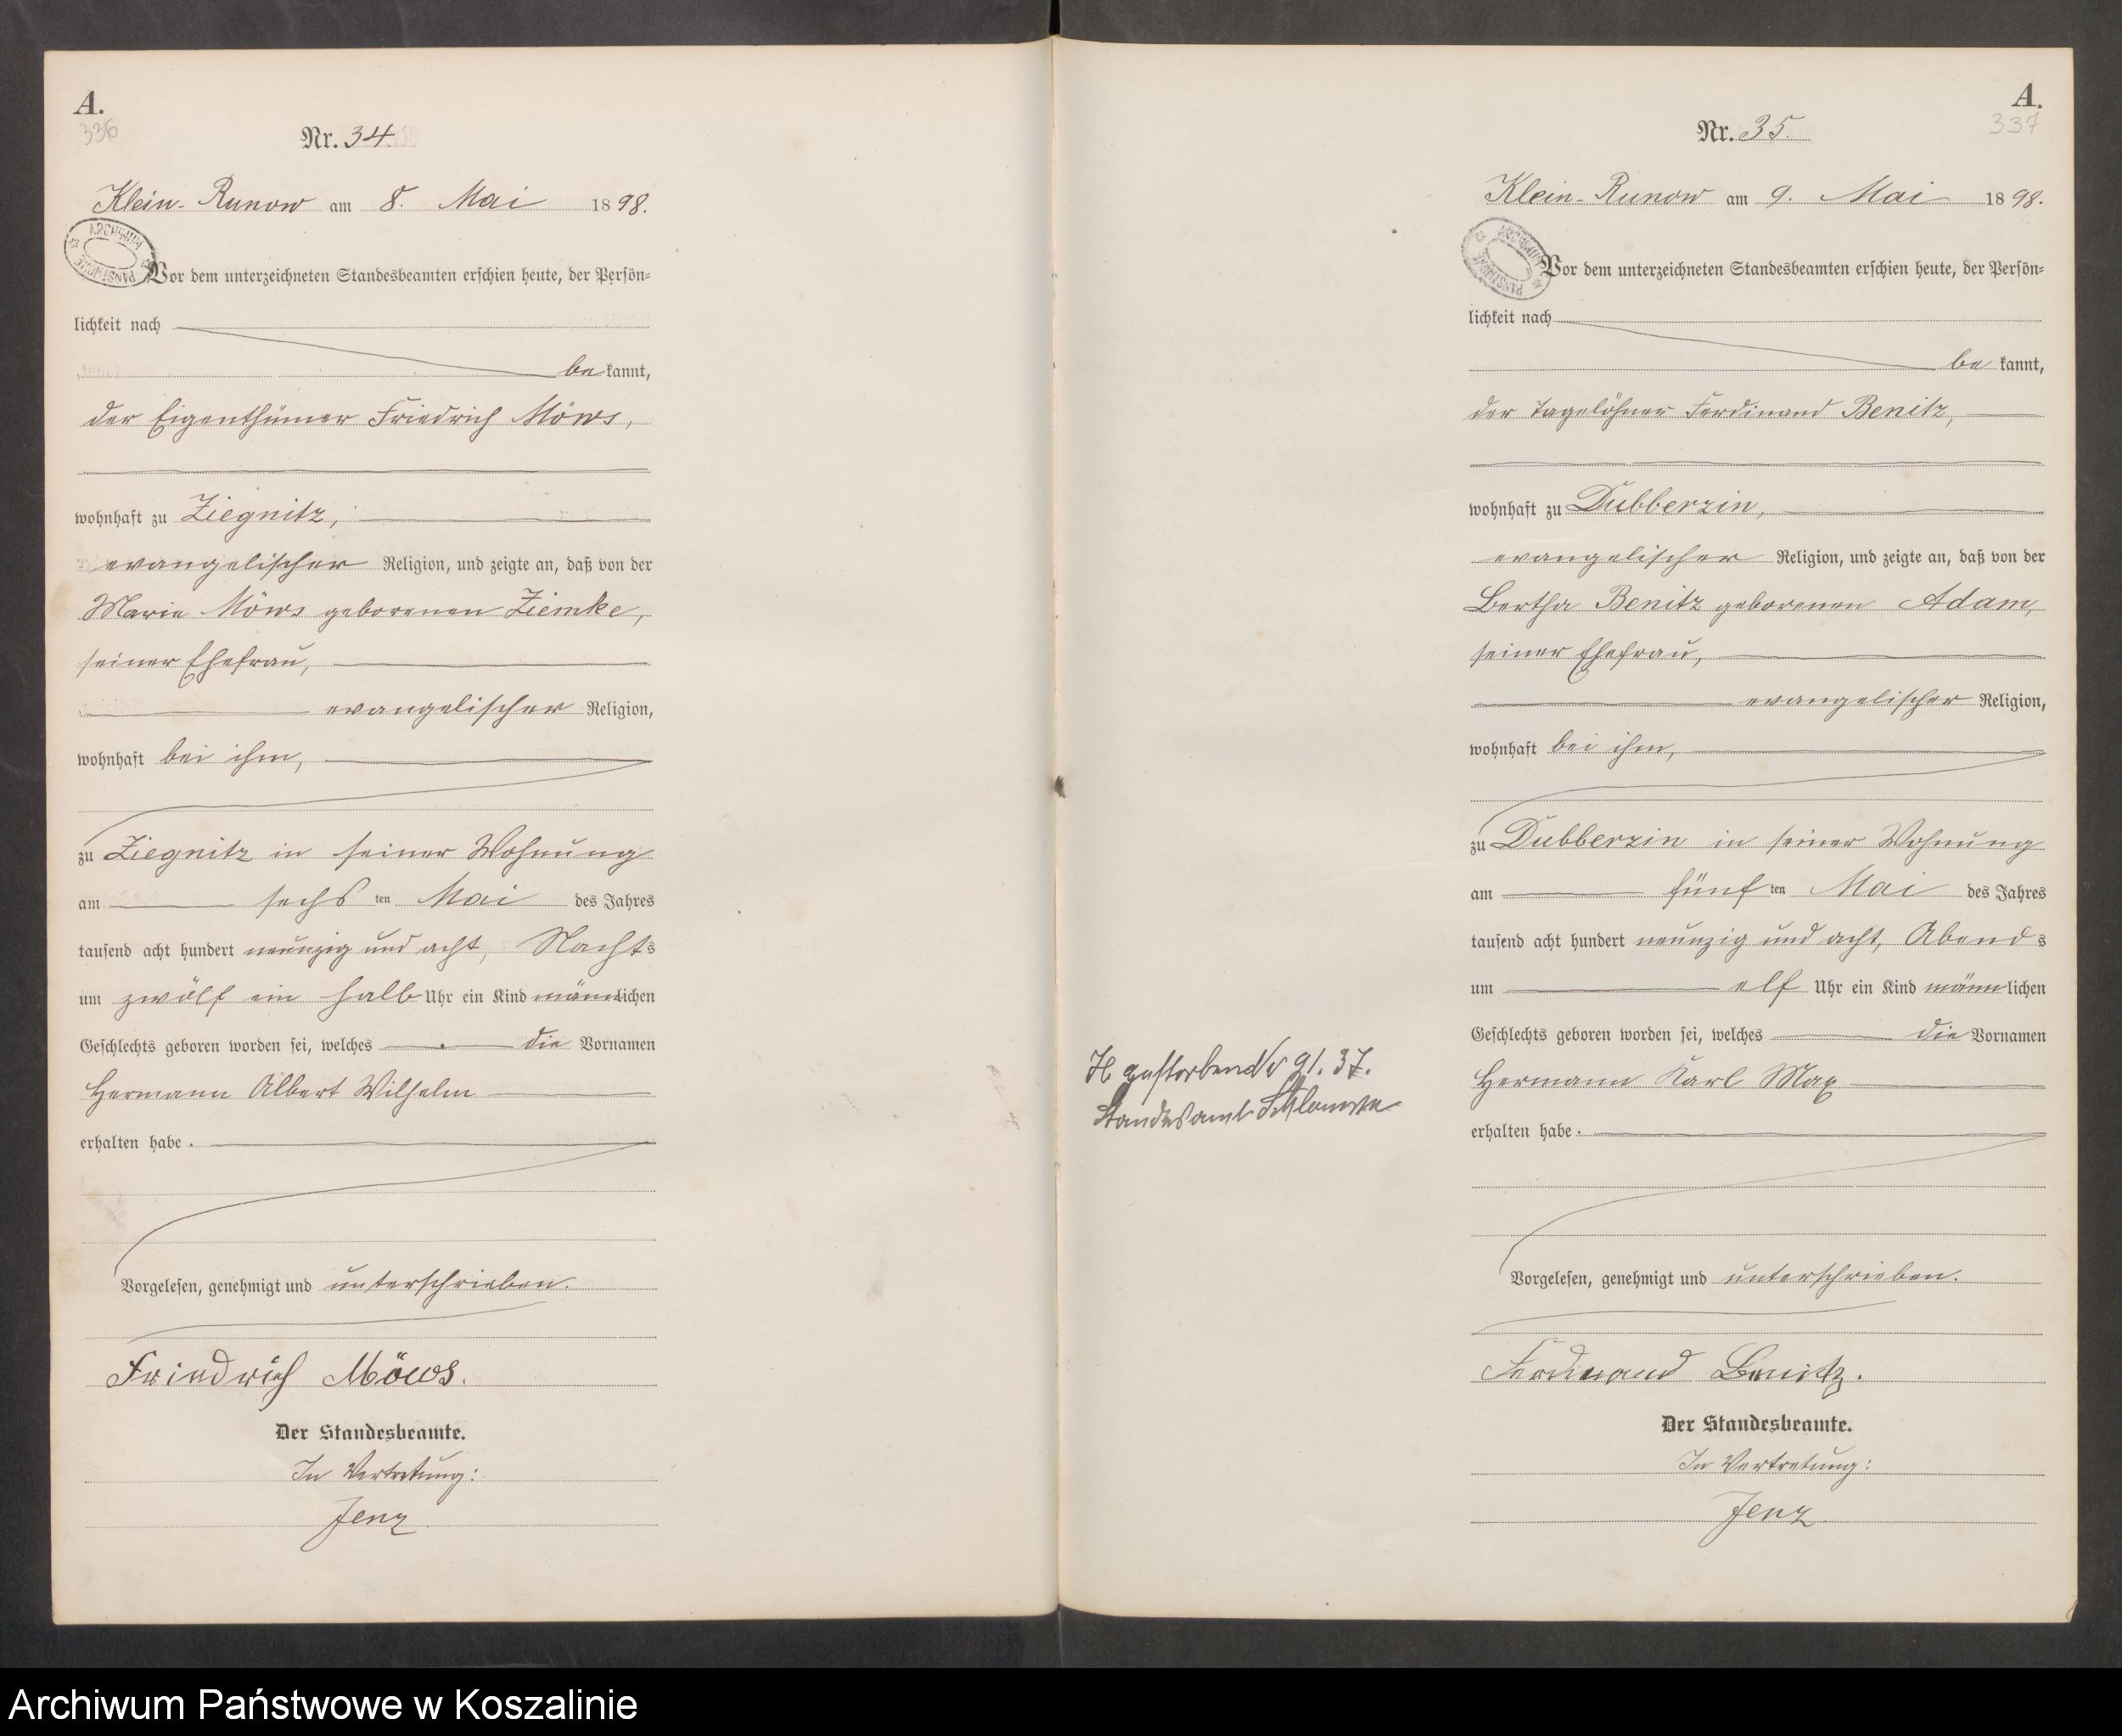 A.
336
Nr. 34.
Klein-Runow am 8. Mai 1898.
ARCHIWUM PAŃSTWOWE
Vor dem unterzeichneten Standesbeamten erschien heute, der Persön=
lichkeit nach
be kannt,
der Eigenthümer Friedrich Möws,
wohnhaft zu Ziegnitz,
evangelischer Religion, und zeigte an, daß von der
Marie Möws geborenen Ziemke,
seiner Ehefrau,
evangelischer Religion,
wohnhaft bei ihm,
zu Ziegnitz in seiner Wohnung
am sechs ten Mai des Jahres
tausend acht hundert neunzig und acht, Nachts
um zwölf ein halb Uhr ein Kind männlichen
Geschlechts geboren worden sei, welches die Vornamen
Hermann Albert Wilhelm
erhalten habe.
Vorgelesen, genehmigt und unterschrieben.
Friedrich Möws.
Der Standesbeamte.
In Vertretung:
Jenz
A.
337
Nr. 35.
Klein-Runow am 9. Mai 1898.
ARCHIWUM PAŃSTWOWE
Vor dem unterzeichneten Standesbeamten erschien heute, der Persön=
lichkeit nach
be kannt,
der Tagelöhner Ferdinand Benitz,
wohnhaft zu Dubberzin,
evangelischer Religion, und zeigte an, daß von der
Bertha Benitz geborenen Adam,
seiner Ehefrau,
evangelischer Religion,
wohnhaft bei ihm,
zu Dubberzin in seiner Wohnung
am fünf ten Mai des Jahres
tausend acht hundert neunzig und acht, Abends
um elf Uhr ein Kind männlichen
Geschlechts geboren worden sei, welches die Vornamen
Hermann Karl Max
erhalten habe.
Vorgelesen, genehmigt und unterschrieben.
Ferdinand Benitz.
Der Standesbeamte.
In Vertretung:
Jenz
gestorben Nr 91. 37.
Standesamt Schlawe
Archiwum Państwowe w Koszalinie